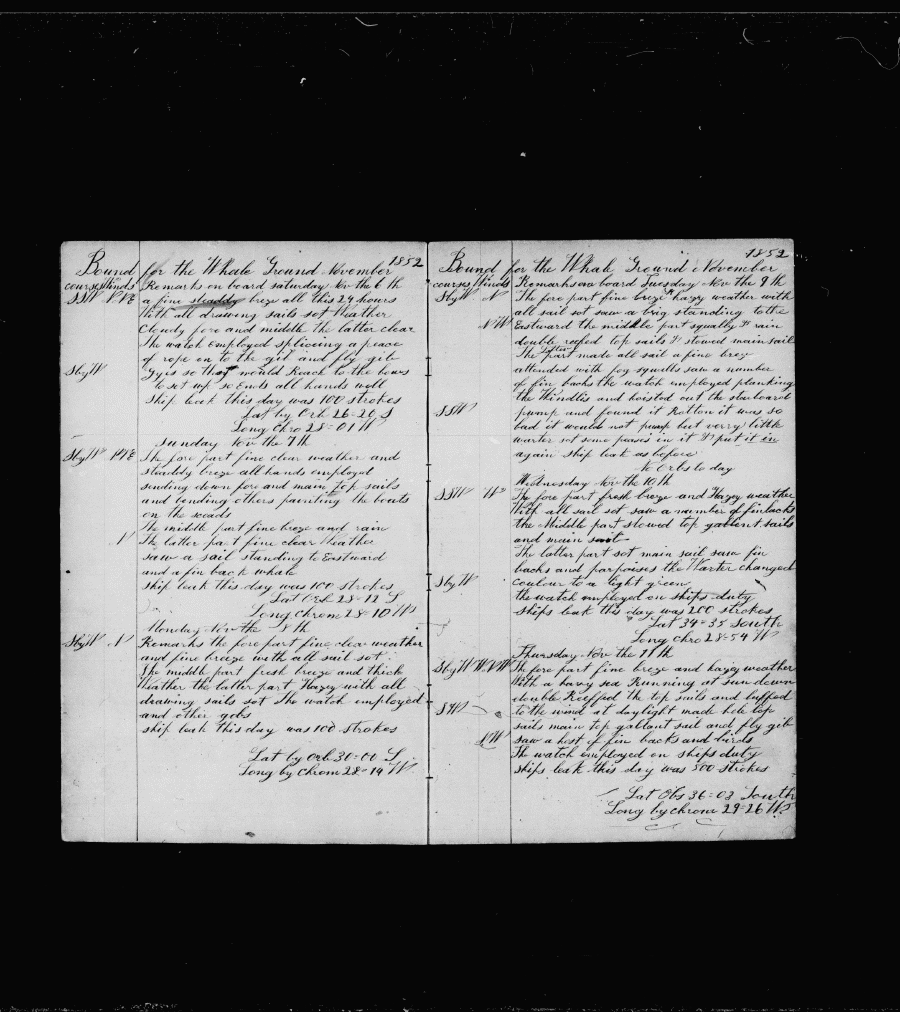 1852
Bound for the Whale Ground November
courses Winds Remarks on board saturday Nov the 6 th
SSW NNE a fine steaddy breze all this 24 hours
With all drawing sails sot Weather
Cloudy fore and middle the latter clear
The watch employed spliceing a peace
of rope on to the gib and fly gib
SbyW Gyes so that would Reach to the bows
to set up so ends all hands well
Ship leak this day was 100 strokes
Lat by Orb 26=20 S
Long Chro 28=01 W
Sunday Nov the 7th
SbyW NNE The fore part fine clear weather and
steaddy breze all hands employed
sending down fore and main top sails
and bending others painting the boats
on the
The middle part fine breze and rain
N The latter part fine clear Weather
saw a sail standing to Eastward
and a fin back whale
ship leak this day was 100 strokes
Lat Orb 28=12 S
Long Chrom 28=10 W
Monday Nov the 8 th
SbyW N Remarks the fore part fine clear weather
and fine breeze with all sail sot
The middle part fresh breeze and thick
Weather the latter part Hazey with all
drawing sails sot The watch employed
and other gobs
ship leak this day was 100 strokes
Lat by Orb 30=00 S
Long by Chrom 28=19 W
1852
Bound for the Whale Ground November
courses Winds Remarks on board Tuesday Nov the 9 th
SbyW N The fore part fine breze hazy weather with
all sail sot saw a brig standing to the
NW Eastward the middle part squally & rain
double reefed top sails & stowed main sail
The latter part made all sail a fine breze
attended with fog squalls saw a number
of fin backs the watch employed planking
the Windlis and hoisted out the starboard
SSW pump and found it Rotton it was so
bad it would not pump but verry little
warter sot some peases in it & put it in
again ship leak as before
No Orbs to day
Wednesday Nov the 10 th
SSW The fore part fresh breze and Hazey weather
With all sail sot saw a number of finbacks
the Middle part stowed top gablent sails
and main sail
The latter part sot main sail saw fin
backs and porpoises the Warter changed
SbyW coulour to a light green
the watch employed on ships duty
ships leak this day was 200 strokes
Lat 34=35 South
Long Chro 28=54 W
Thursday Nov the 11 th
SbyW WNW The fore part fine breze and hazey weather
With a havy sea Running at sun down
double Reeffed the top sails and luffed
SW to the wind at daylight made hole top
sails main top gablant sail and fly gib
NW saw a host of fin backs and birds
The watch employed on ships duty
ships leak this day was 500 strokes
Lat Obs 36=03 South
Long by chrom 29=26 W